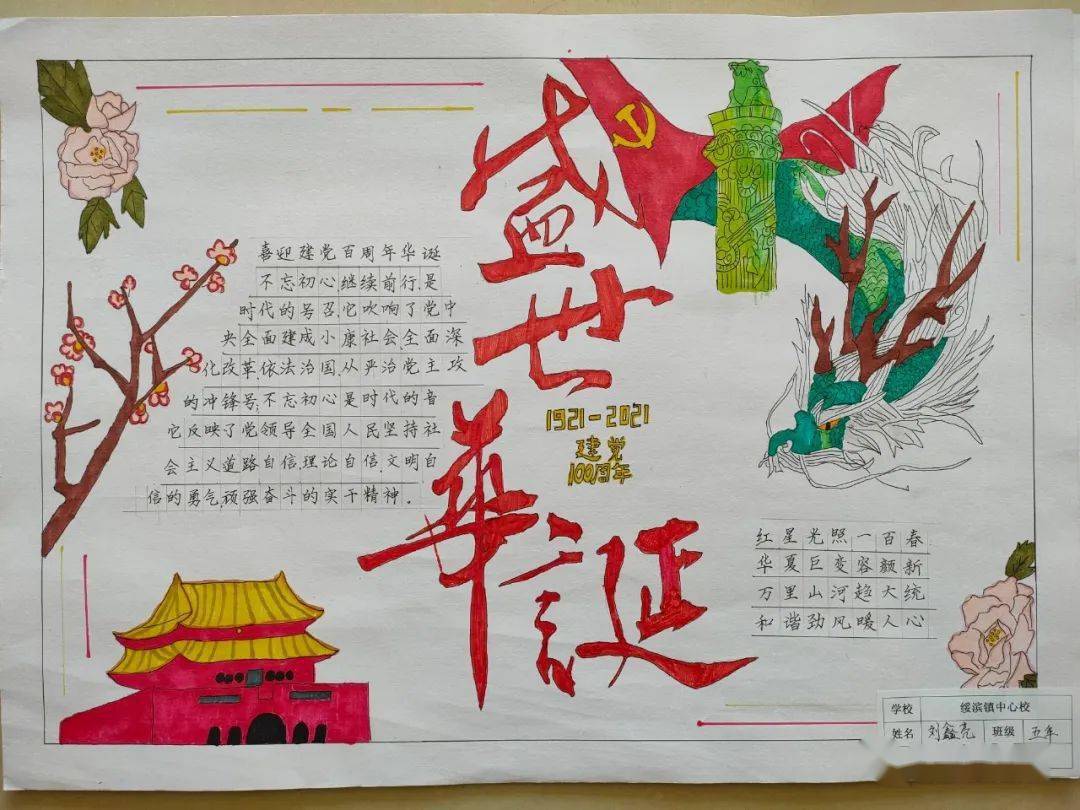 盛世華誕
1921-2021
建党
100周年
喜迎建党百周年华诞
不忘初心,继续前行,是
时代的号召,它吹响了党中
央全面建成小康社会,全面深
化改革,依法治国,从严治党主攻
的冲锋号;不忘初心是时代的音
它反映了党领导全国人民坚持社
会主义道路自信,理论自信,文明自
信的勇气,顽强奋斗的实干精神。
红星光照一百春
华夏巨变容颜新
万里山河趋大统
和谐劲风暖人心
学校 绥滨镇中心校
姓名 刘鑫亮 班级 五年